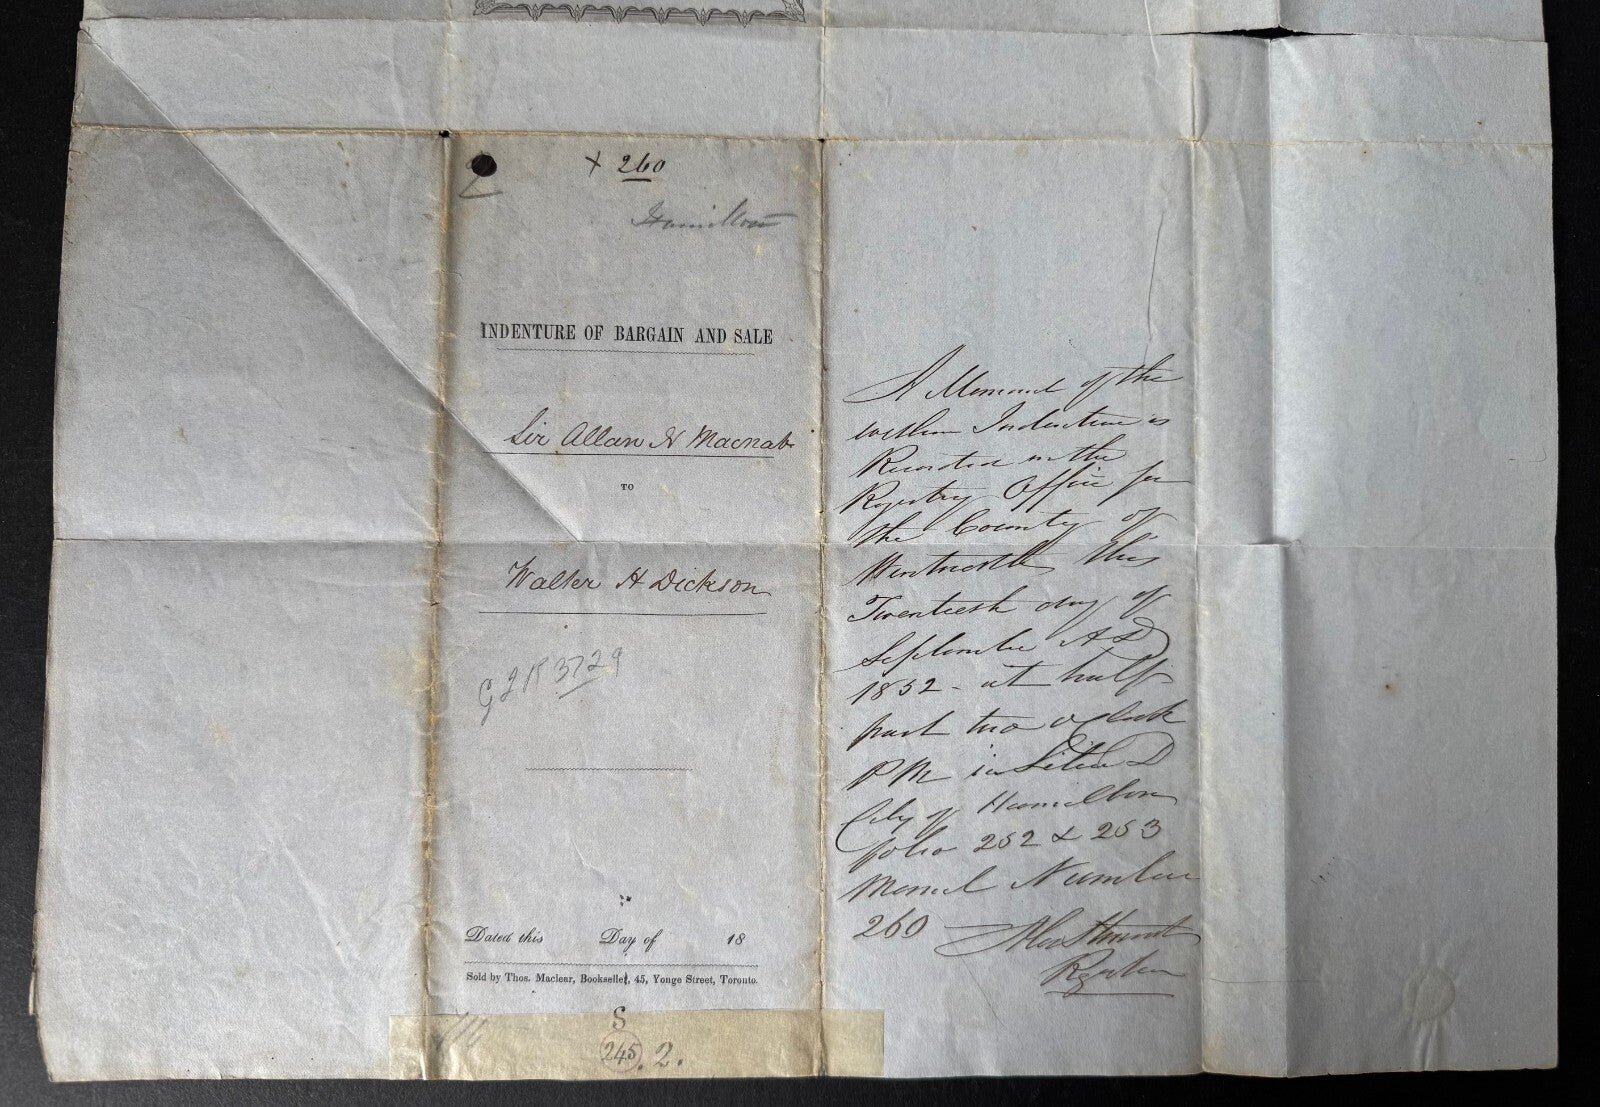 × 260
Hamilton
INDENTURE OF BARGAIN AND SALE
Sir Allan N Macnab
TO
Walter H Dickson
3729
Dated this Day of 18
Sold by Thos. Maclear, Bookseller, 45, Yonge Street, Toronto.
S
245 . 2.
A Memorial of the
within Indenture is
Recorded in the
Registry Office for
the County of
Wentworth this
Twentieth day of
September A D
1852 - at half
past two o Clock
P M in Liber D
City of Hamilton
folio 252 & 253
Memorial Number
260
Registrar